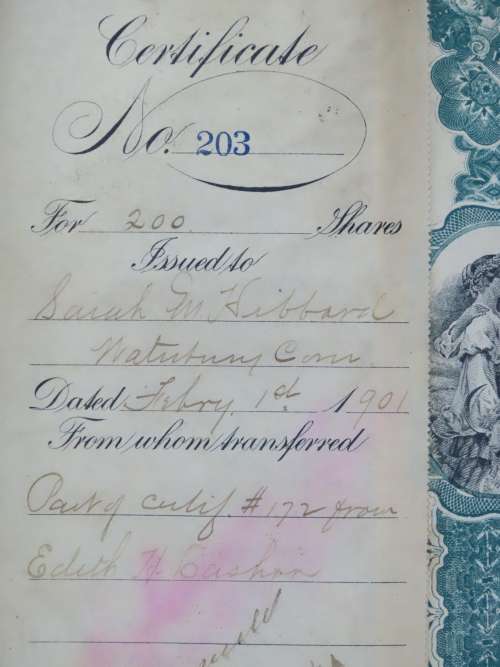 Certificate
No. 203
For 200 Shares
Issued to
Sarah M Hibbard
Waterbury Conn
Dated Febry. 1st 1901
From whom transferred
Part of certif. #172 from
Edith H